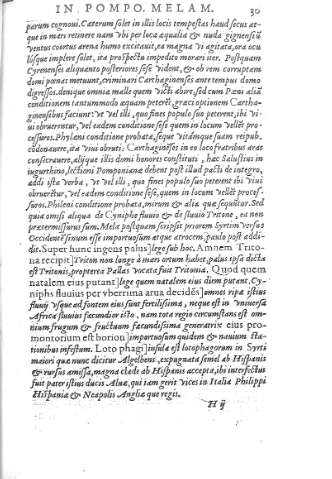 IN. POMPO. MELAM. 30
parum cognoui. Cæterum solet in illis locis tempestas haud secus at-
que in mari retinere nam vbi per loca æqualia & nuda gignensiū
ventus coortus arena humo excitauit, ea magna vi agitata, ora ocu
lósque implere solet, ita prospectu impedito morari iter. Postquam
Cyrenenses aliquanto posteriores sese vident, & ob rem corruptam
domi pœnas metuunt, criminari Carthaginenses ante tempus domo
digressos. denique omnia malle quam victi abire. sed cum Pœni aliã
conditionem tantummodo æquam peterẽt, græci optionem Cartha-
ginensibus faciunt: vt vel illi, quos fines populo suo peterent, ibi vi-
ui obruerentur, vel eadem conditione sese quem in locum vellēt pro-
cessuros. Phyleni conditione probata, seque vitámque suam reipub.
condonauere, ita viui obruti. Carthaginēses in eo loco fratribus aras
consecrauere, aliíque illis domi honores constituti, hæc Salustius in
iugurthino, lectioni Pomponianæ debent post illud pacti de integro,
addi ista verba, vt vel illi, quos fines populo suo peterent ibi viui
obruerētur, vel eadem conditione sese, quem in locum vellēt proces-
suros. Phileni conditione probata, mirum & alia quæ sequũtur. Sed
quia omisi aliqua de Cyniphe fluuio & de fluuio Tritone, ea nen
prætermissurus sum. Mela postquam scripsit priorem Syrtim versus
Occidentē sinum esse importuosum atque atrocem, paulo post addi-
dit. Super hunc ingens palus] lege sub hoc. Amnem Trito-
na recipit] Triton non longe à mari ortum habet. palus ipsa dicta
est Tritonis, propterea Pallas vocata fuit Tritonia. Quod quem
natalem eius putant] lege quem natalem eius diem putant. Cy-
niphs fluuius per vberrima arua decidēs] amnes ripæ istius
fluuij vsque ad fontem eius sunt fertilissimæ, neque est in vniuersa
Africa fluuius fæcundior isto, nam tota regio circumstans est om-
nium frugum & fructuum fæcundissima generatrix eius pro-
montorium est borion] importuosum quidem & nauium sta-
tionibus infestum. Loto phagi] insula est lotophagorum in Syrti
maiori quæ nunc dicitur Algelbens, expugnata semel ab Hispanis
& rursus amissa, magna clade ab Hispanis accepta, ibi interfectus
fuit pater istius ducis Aluæ, qui iam gerit vices in Italia Philippi
Hispaniæ & Neapolis Angliæ que regis.
H ij